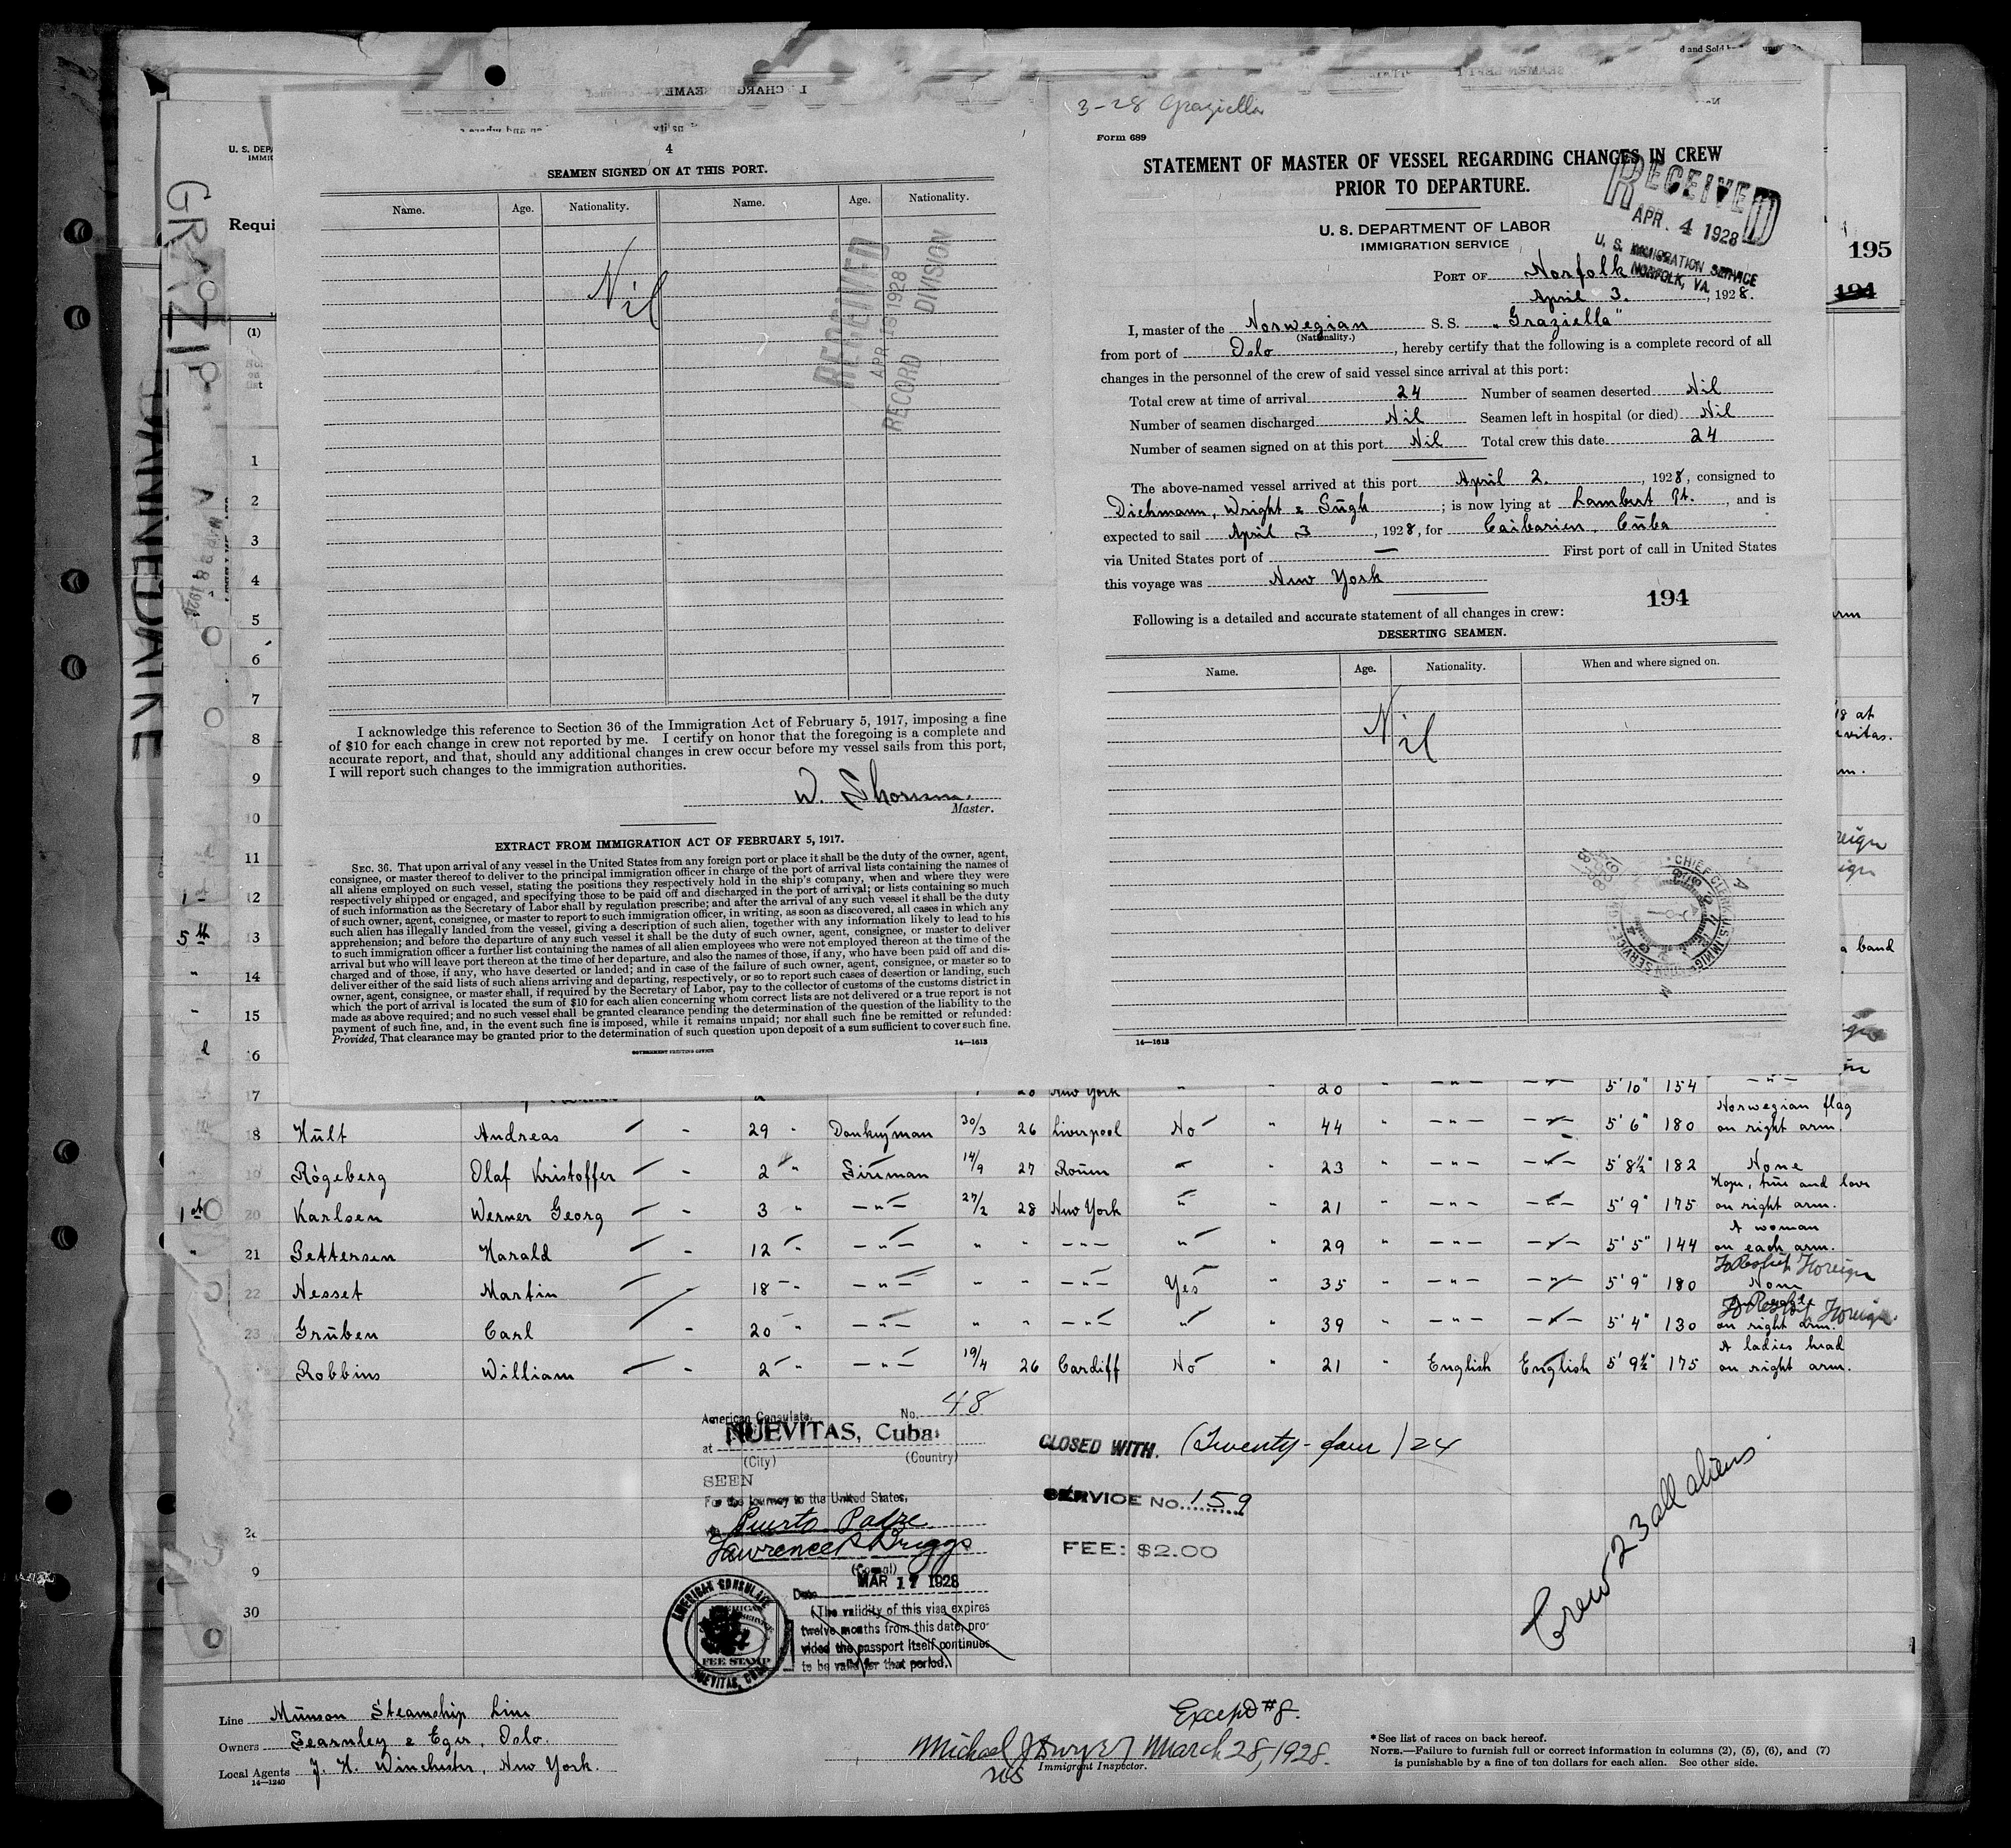 4
SEAMEN SIGNED ON AT THIS PORT.
Name. Age. Nationality. Name. Age. Nationality.
Nil
RECEIVED
APR 19 1928
RECORD DIVISION
I acknowledge this reference to Section 36 of the Immigration Act of February 5, 1917, imposing a fine
of $10 for each change in crew not reported by me. I certify on honor that the foregoing is a complete and
accurate report, and that, should any additional changes in crew occur before my vessel sails from this port,
I will report such changes to the immigration authorities.
Master.
EXTRACT FROM IMMIGRATION ACT OF FEBRUARY 5, 1917.
SEC. 36. That upon arrival of any vessel in the United States from any foreign port or place it shall be the duty of the owner, agent,
consignee, or master thereof to deliver to the principal immigration officer in charge of the port of arrival lists containing the names of
all aliens employed on such vessel, stating the positions they respectively hold in the ship's company, when and where they were
respectively shipped or engaged, and specifying those to be paid off and discharged in the port of arrival; or lists containing so much
of such information as the Secretary of Labor shall by regulation prescribe; and after the arrival of any such vessel it shall be the duty
of such owner, agent, consignee, or master to report to such immigration officer, in writing, as soon as discovered, all cases in which any
such alien has illegally landed from the vessel, giving a description of such alien, together with any information likely to lead to his
apprehension; and before the departure of any such vessel it shall be the duty of such owner, agent, consignee, or master to deliver
to such immigration officer a further list containing the names of all alien employees who were not employed thereon at the time of the
arrival but who will leave port thereon at the time of her departure, and also the names of those, if any, who have been paid off and dis-
charged and of those, if any, who have deserted or landed; and in case of the failure of such owner, agent, consignee, or master so to
deliver either of the said lists of such aliens arriving and departing, respectively, or so to report such cases of desertion or landing, such
owner, agent, consignee, or master shall, if required by the Secretary of Labor, pay to the collector of customs of the customs district in
which the port of arrival is located the sum of $10 for each alien concerning whom correct lists are not delivered or a true report is not
made as above required; and no such vessel shall be granted clearance pending the determination of the question of the liability to the
payment of such fine, and, in the event such fine is imposed, while it remains unpaid; nor shall such fine be remitted or refunded:
Provided, That clearance may be granted prior to the determination of such question upon deposit of a sum sufficient to cover such fine.
GOVERNMENT PRINTING OFFICE 14—1613
3-28 Graziella
Form 689
STATEMENT OF MASTER OF VESSEL REGARDING CHANGES IN CREW
PRIOR TO DEPARTURE.
RECEIVED
APR. 4 1928
U. S. IMMIGRATION SERVICE
NORFOLK, VA.
U. S. DEPARTMENT OF LABOR
IMMIGRATION SERVICE
PORT OF Norfolk
April 3., 1928.
I, master of the Norwegian S. S. "Graziella"
(Nationality.)
from port of Oslo, hereby certify that the following is a complete record of all
changes in the personnel of the crew of said vessel since arrival at this port:
Total crew at time of arrival 24 Number of seamen deserted Nil
Number of seamen discharged Nil Seamen left in hospital (or died) Nil
Number of seamen signed on at this port Nil Total crew this date 24
The above-named vessel arrived at this port April 2., 1928, consigned to
Dichmann, Wright & Pugh; is now lying at Lambert Pt., and is
expected to sail April 3, 1928, for Caibarien, Cuba
via United States port of — First port of call in United States
this voyage was New York
194
Following is a detailed and accurate statement of all changes in crew:
DESERTING SEAMEN.
Name. Age. Nationality. When and where signed on.
Nil
14—1613
195
194
Requi
(1)
1
2
3
4
5
6
7
8
9
10
11
12
13
14
15
16
17 New York 20 5'10" 154
18 Hult Andreas 29 Donkeyman 30/3 26 Liverpool No 44 5'6" 180 Norwegian flag on right arm.
19 Rögeberg Olaf Kristoffer 2 Fireman 14/9 27 Rouen 23 5'8½" 182 None
20 Karlsen Werner Georg 3 27/2 28 New York 21 5'9" 175 Hope, true and love on right arm.
21 Pettersen Harald 12 29 5'5" 144 A woman on each arm.
22 Nesset Martin 18 Yes 35 5'9" 180 None
23 Gruben Carl 20 39 5'4" 130 on right arm.
Robbins William 2 19/4 26 Cardiff No 21 English English 5'9½" 175 A ladies head on right arm.
American Consulate, No. 48
at NUEVITAS, Cuba
(City) (Country)
SEEN
For the journey to the United States,
via Puerto Padre
Lawrence P Briggs
(Consul)
Date MAR 17 1928
(The validity of this visa expires
twelve months from this date, pro-
vided the passport itself continues
to be valid for that period.)
AMERICAN CONSULATE
FEE STAMP
NUEVITAS, CUBA
CLOSED WITH. (Twenty-four) 24
SERVICE No. 159
FEE: $2.00
Crew 23 all aliens
30
Line Munson Steamship Line
Owners Fearnley & Eger, Oslo.
Local Agents J. H. Winchester, New York.
14—1240
Except #8.
Michael J Dwyer March 28, 1928.
Immigrant Inspector.
* See list of races on back hereof.
NOTE.—Failure to furnish full or correct information in columns (2), (5), (6), and (7)
is punishable by a fine of ten dollars for each alien. See other side.